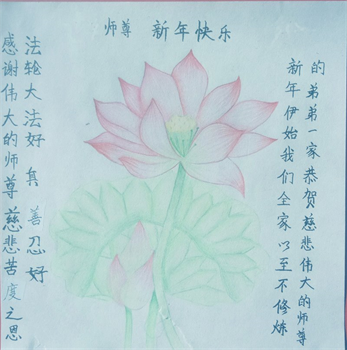 师尊 新年快乐
新年伊始我们全家以至不修炼
的弟弟一家恭贺慈悲伟大的师尊
法轮大法好 真善忍好
感谢伟大的师尊慈悲苦度之恩